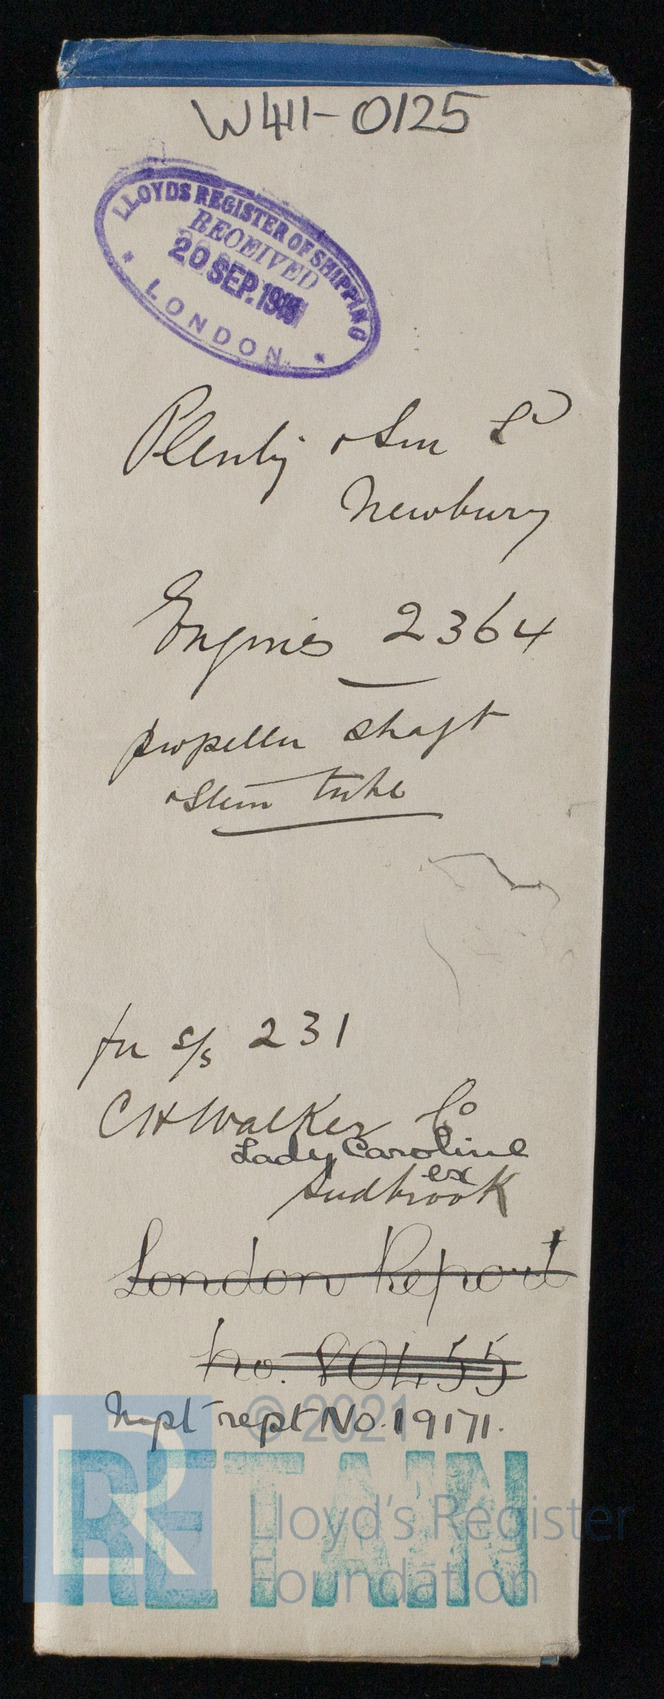 W411-0125
LLOYDS REGISTER OF SHIPPING
RECEIVED
20 SEP. 19
LONDON
Plenty & Son Ld
Newbury
Engines 2364
propeller shaft
& Stern tube
for s/s 231
C H Walker Co
Lady Caroline
ex
Sudbrook
London Report
No. 80455
Nwpt rept No. 19171.
© 2021
RETAIN
LR
Lloyd's Register
Foundation